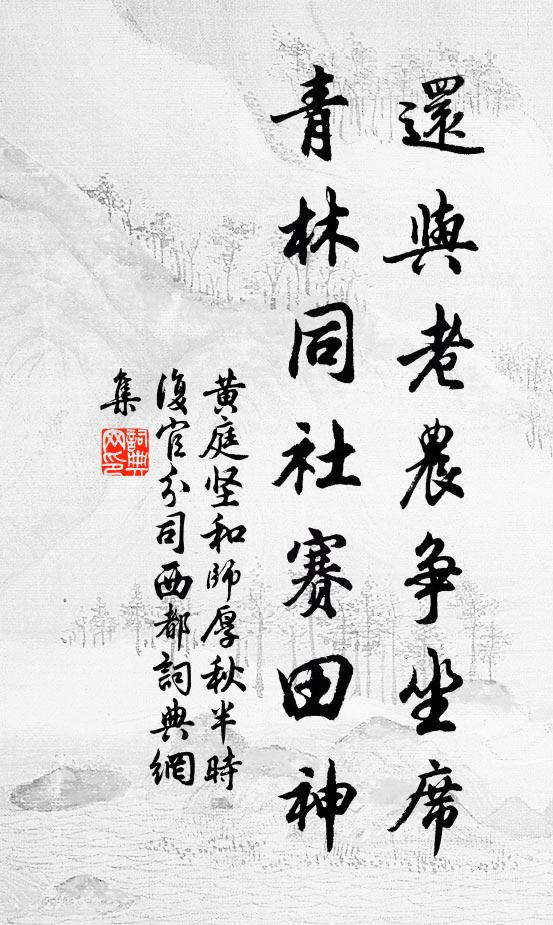 還與老農争坐席
青林同社賽田神
黄庭坚和師厚秋半時
復官分司西都詞典網
集
詞典
网印